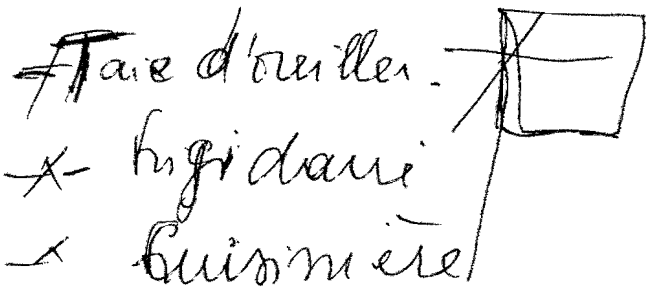 Taie d'oreiller.
frigidaire
Cuisinière